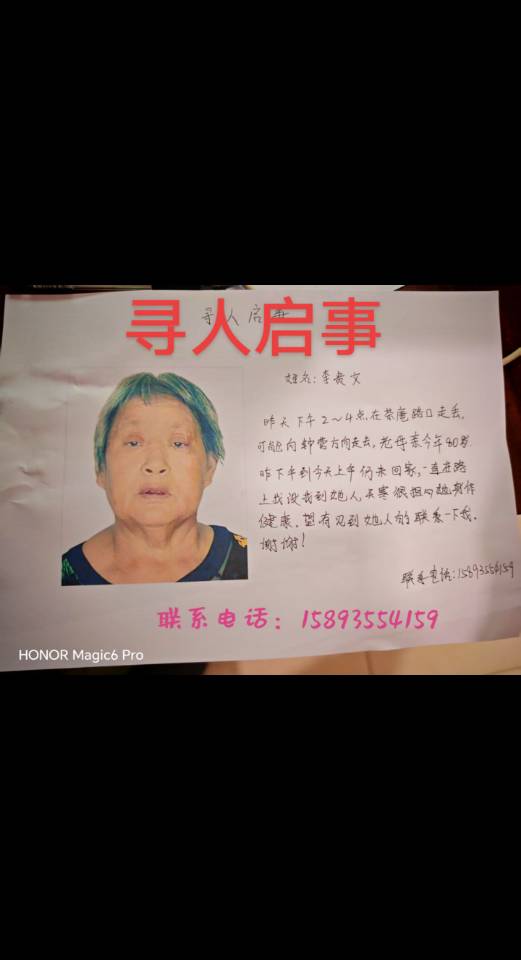 寻人启事
寻人启事
姓名：李爱文
昨天下午2～4点在茶庵路口走丢,
可能向钟营方向走去,老母亲今年80岁
昨下午到今天上午仍未回家,一直在路
上找没找到她人,天寒很担心她身体
健康,望有见到她人的联系一下我,
谢谢!
联系电话:15893554159
联系电话：15893554159
HONOR Magic6 Pro